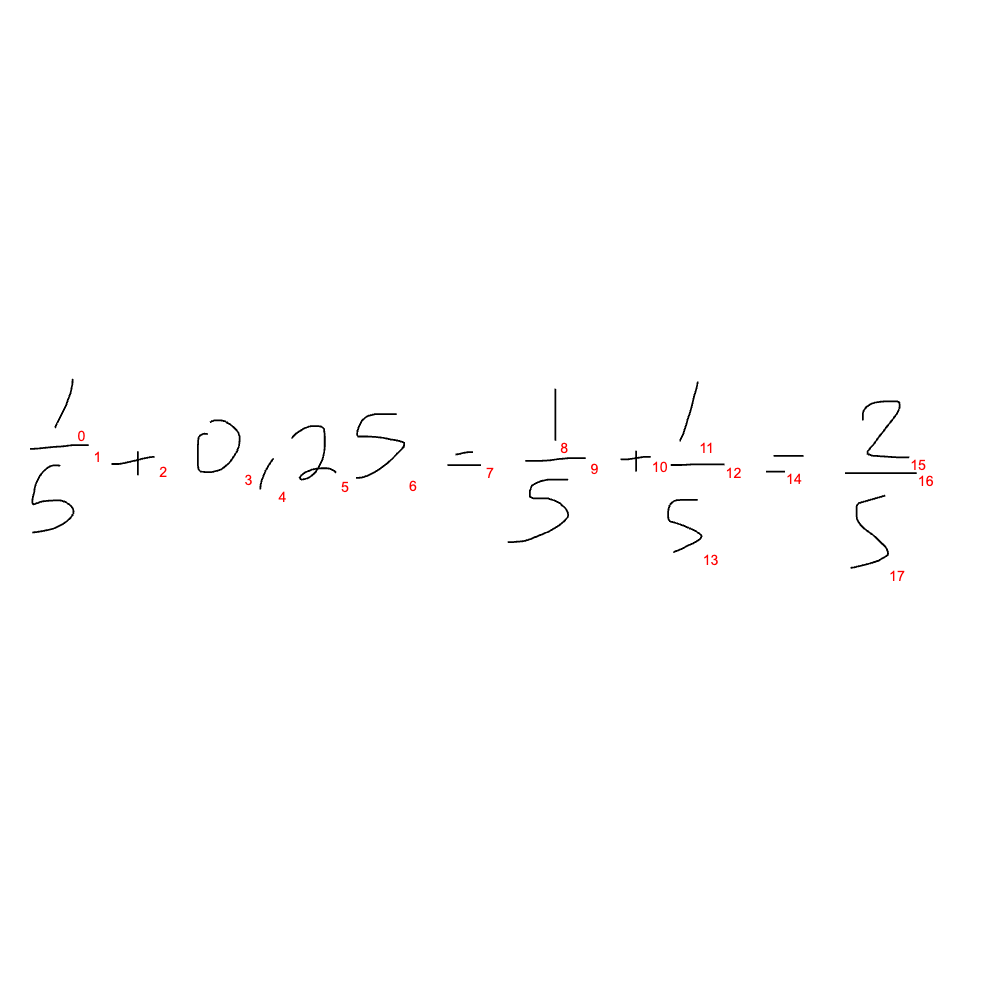 1/5 + 0,25 = 1/5 + 1/5 = 2/5
0 1 2 3 4 5 6 7 8 9 10 11 12 13 14 15 16 17